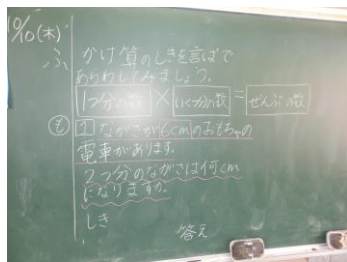 10/10(木)
ふ かけ算のしきを言ばで
あらわしてみましょう。
1つ分の数 × いくつ分の数 = ぜんぶの数
も 1 ながさが6cmのおもちゃの
電車があります。
2つ分のながさは何cm
になりますか。
しき
答え